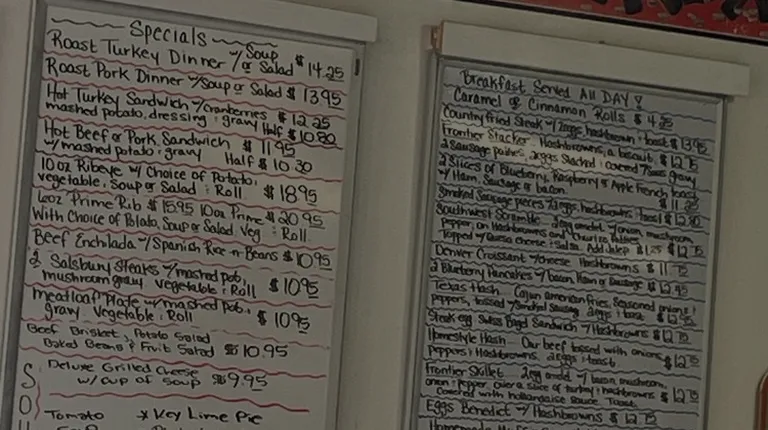 Specials
Roast Turkey Dinner w/ Soup or Salad $14.25
Roast Pork Dinner w/Soup or Salad $13.95
Hot Turkey Sandwich w/cranberries $12.25
mashed potato, dressing : gravy Half $10.80
Hot Beef or Pork Sandwich $11.95
w/mashed potato : gravy Half $10.30
10oz Ribeye w/ Choice of Potato,
vegetable, Soup or Salad : Roll $18.95
6oz Prime Rib $15.95 10oz Prime $20.95
With Choice of Potato, Soup or Salad Veg : Roll
Beef Enchlada w/Spanish Rice-n-Beans $10.95
2 Salsbury Steaks w/mashed pot,
mushroom gravy vegetable : Roll $10.95
Meatloaf Plate w/mashed pot,
gravy Vegetable : Roll $10.95
Beef Brisket, Potato Salad
Baked Beans & Fruit Salad $10.95
Deluxe Grilled Cheese
w/cup of soup $9.95
S
O
Tomato * Key Lime Pie
Breakfast Served All DAY!
Caramel or Cinnamon Rolls $4.
Country fried Steak w/2eggs, hashbrowns : toast $13.95
Frontier Stacker. Hashbrowns, a biscuit,
2 Sausage patties, 2eggs Stacked : covered gravy $12.75
2 Slices of Blueberry, Raspberry or Apple French toast
w/ Ham, Sausage or bacon. $11.
Smoked Sausage pieces /2eggs, hashbrowns : toast
Southwest Scramble mushroom
pepper, on Hashbrowns and
Topped w/ cheese : Salsa. Add Jalep $12.75
Denver Croissant w/cheese Hashbrowns $11.
2 Blueberry Pancakes w/ bacon, Ham or Sausage $12.95
Texas Hash. Cajun american fries, Seasoned onions :
peppers, tossed w/smoked sausage 2eggs : toast
Steak egg Swiss Bagel Sandwich w/Hashbrowns $12.
Homestyle Hash. Our beef tossed with onions
peppers : Hashbrowns. 2eggs : toast.
Frontier Skillet. 2egg w/ bacon, mushroom,
onion : pepper over a slice of turkey : hashbrowns
Covered with hollandaise sauce Toast.
Eggs Benedict w/Hashbrowns $12.75